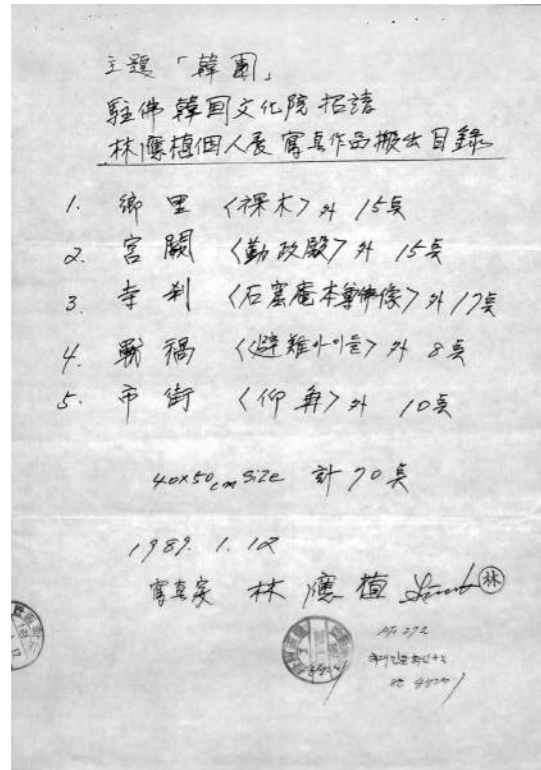 主題 「韓國」
駐佛 韓国文化院 招請
林應植個人展 寫真作品搬出目錄
1. 鄉里 〈裸木〉 外 15点
2. 宮闕 〈勤政殿〉 外 15点
3. 寺刹 〈石窟庵本尊佛像〉 外 17点
4. 戰禍 〈避難아이들〉 外 8点
5. 市街 〈仰角〉 外 10点
40x50cm size 計 70点
1989. 1. 12
寫真家 林應植
林